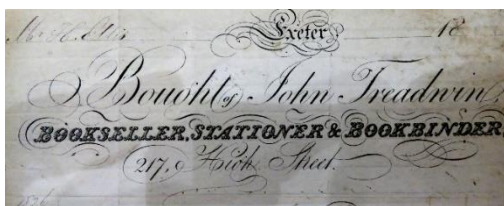 Exeter 18
Bought of John Treadwin
BOOKSELLER, STATIONER & BOOKBINDER,
217, High Street.